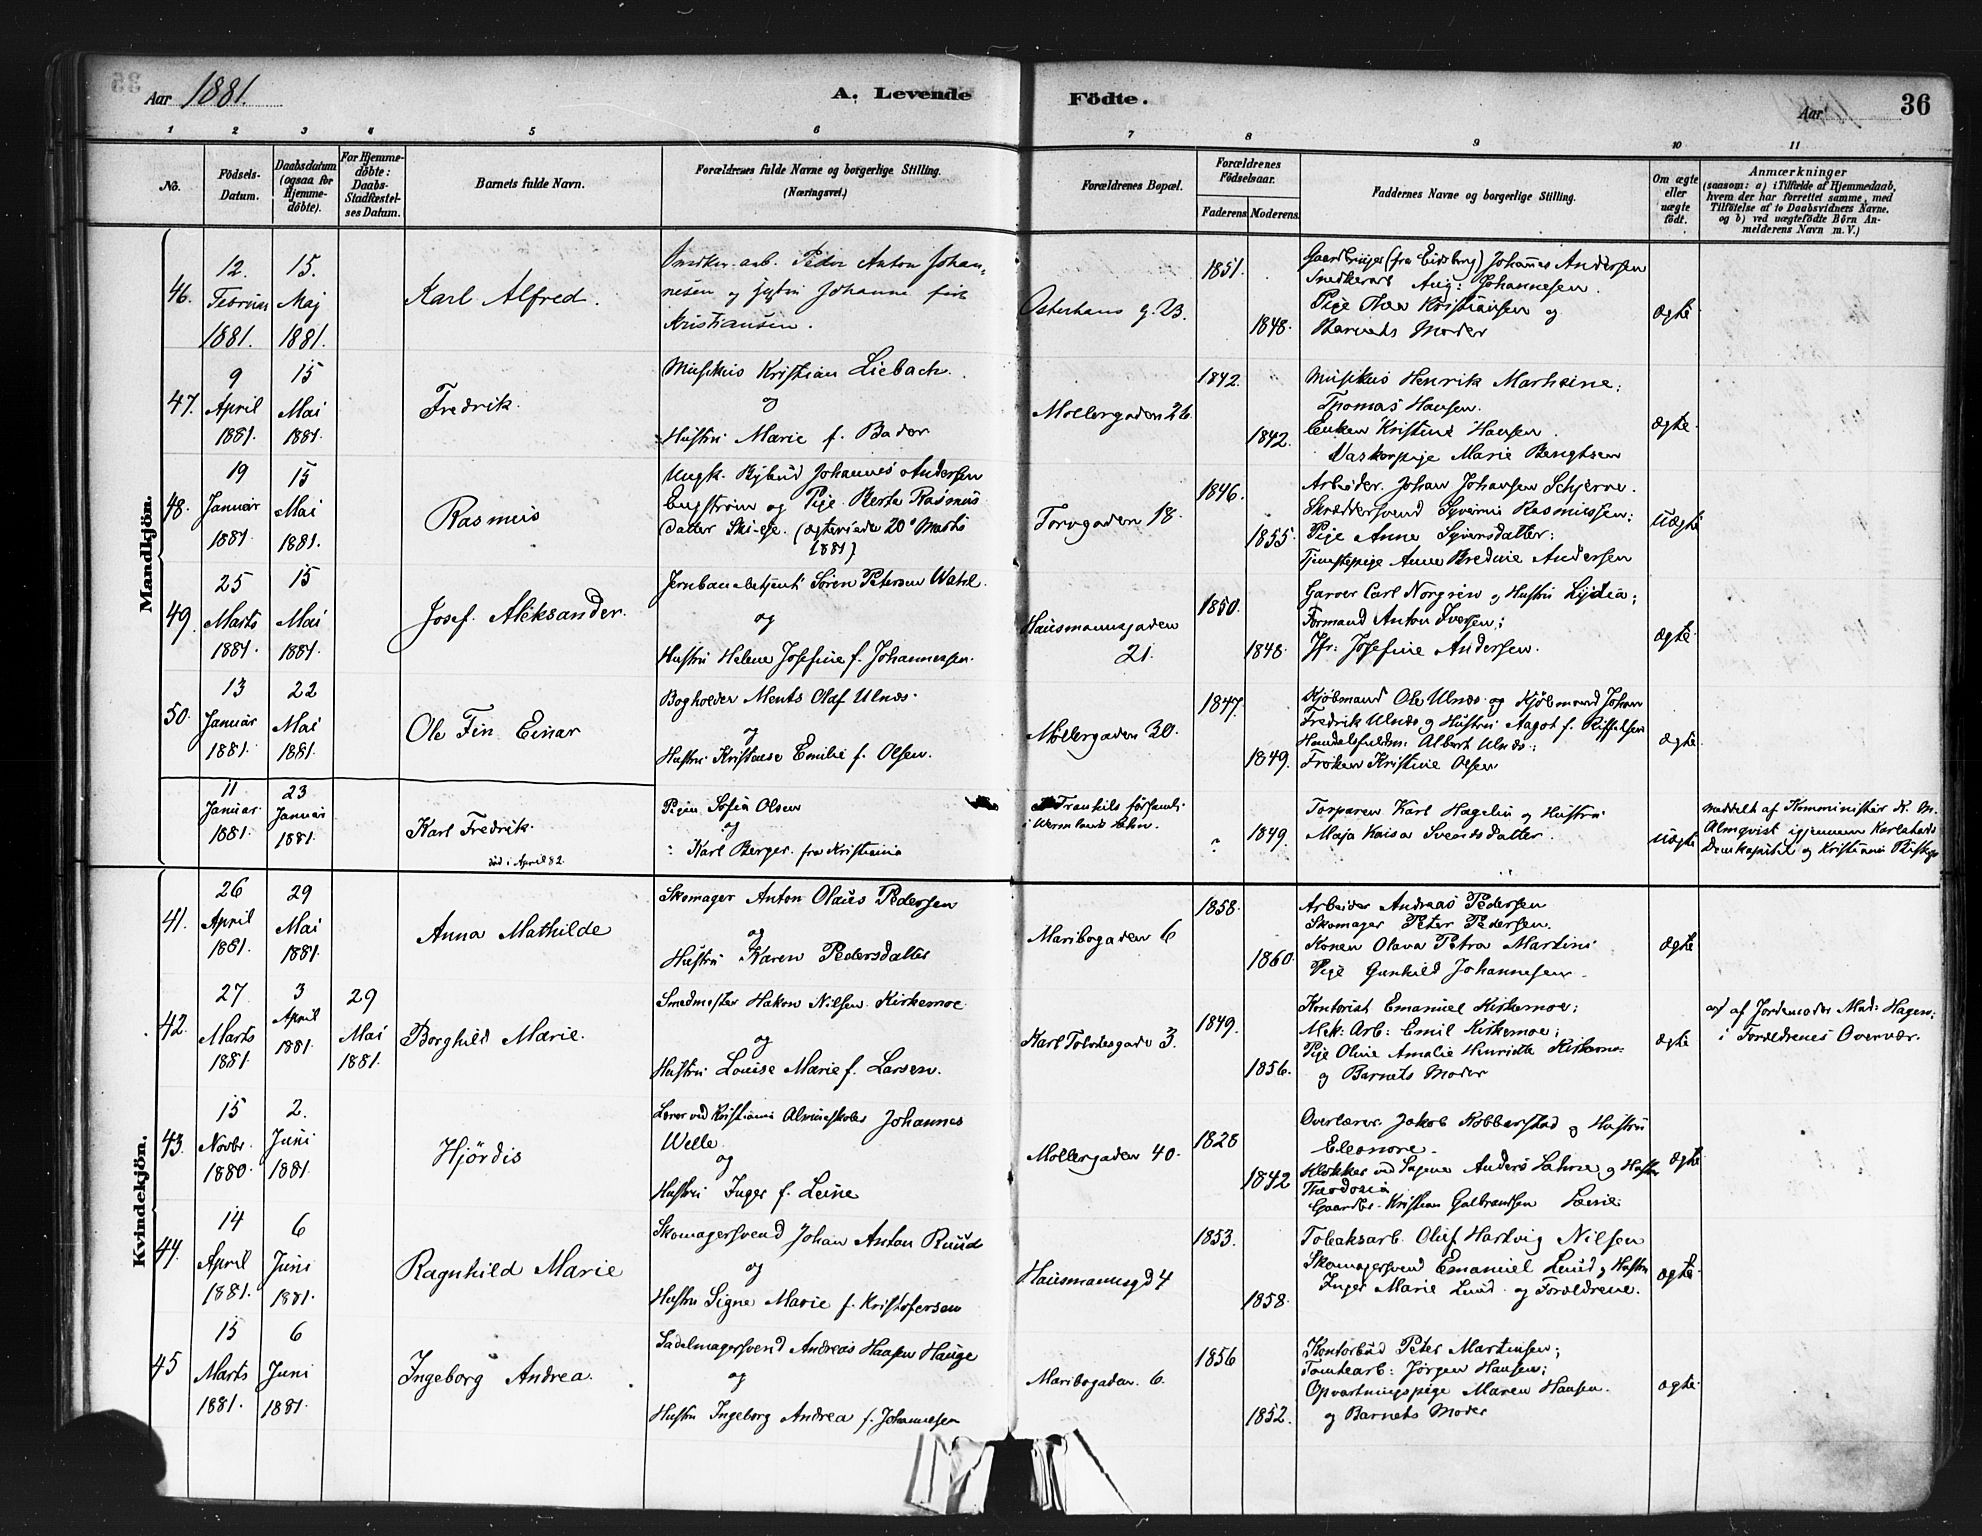 Aar 1881.
A. Levende Födte.
Aar 36
1 2 3 4 5 6 7 8 9 10 11
No.
Födsels-
Datum.
Daabsdatum
(ogsaa for
Hjemme-
döbte).
For Hjemme-
döbte:
Daabs-
Stadfæstel-
ses Datum.
Barnets fulde Navn.
Forældrenes fulde Navne og borgerlige Stilling.
(Næringsvei.)
Forældrenes Bopæl.
Forældrenes
Födselsaar.
Faderens. Moderens.
Faddernes Navne og borgerlige Stilling.
Om ægte
eller
uægte
födt.
Anmærkninger
(saasom: a) i Tilfælde af Hjemmedaab,
hvem der har forrettet samme, med
Tilföielse af to Daabsvidners Navne.
og b) ved uægtefödte Börn An-
melderens Navn m. V.)
Mandkjön.
46.
12.
Februar
1881.
15.
Maj
1881.
Karl Alfred.
Snedker.arb. Peder Anton Johan-
nesen og Hustru Johanne født
Kristiansen.
Osterhaus g. 23.
1851.
1848.
Gaardbruger (fra Eidsberg) Johannes Andersen
Snedkerarb Aug: Johannesen.
Pige Thea Kristiansen og
Barnets Moder
ægte
47.
9
April
1881.
15
Mai
1881.
Fredrik.
Musikus Kristian Liebach.
og
Hustru Marie f. Bader
Møllergaden 26.
1842.
1842.
Musikus Henrik
Thomas Hansen.
Enken Kristine Hansen.
Vaskerpige Marie Bengtsen
ægte.
48.
19
Januar
1881.
15
Mai
1881.
Rasmus
Ungk. Bybud Johannes Andersen
Engstrøm og Pige Berte Rasmus
datter (ægteviede 20 Marts
1881)
Torvgaden 18.
1846.
1855.
Arbeider. Johan Johansen Schjerve.
Skræddersvend Syvernis Rasmussen;
Pige Anne Syversdatter:
Tjenestepige Anne Bredine Andersen
Uægte
49.
25
Marts
1881.
15
Mai
1881.
Josef. Aleksander.
Jernbanebetjent Søren Petersen Wahl.
og
Hustru Helene Josefine f. Johannessen.
Hausmannsgaden
21.
1850.
1848.
Garver Carl Norgren og Hustru Lydia;
Formand Anton Iversen;
Jfr: Josefine Andersen.
ægte.
50.
13
Januar
1881.
22
Mai
1881.
Ole Fin Einar
Bogholder Ments Olaf Ulnæs.
og
Hustru Kristense Emilie f. Olsen.
Møllergaden 30.
1847.
1849.
Kjøbmand Ole Ulnæs og Kjøbmand Johan
Fredrik Ulnæs og Hustru Aagot f.
Handelsfuldm: Albert Ulnæs;
Frøken Kristine Olsen
ægte.
11
Januar
1881.
23
Januar
1881.
Karl Fredrik.
død i April 82.
Pigen Sofia Olsen
og
Karl Berger. fra Kristiania
i Wermlands Lehn.
?
1849.
Torparen Karl Hagelin og Hustru
Maja Kaisa Svendsdatter.
Uægte
meddelt af Komminister K. M.
Almqvist igjennem Karlstads
Domkapitel og Kristiania
Kvindekjön.
41.
26
April
1881.
29
Mai
1881.
Anna Mathilde
Skomager Anton Olaus Pedersen
og
Hustru Karen Pedersdatter
Maribogaden 6
1858.
1860.
Arbeider Andreas Pedersen
Skomager Peter Pedersen.
Konen Olava Petra Martins
Pige Gunhild Johannesen.
ægte
42.
27
Marts
1881.
3
April
1881.
29
Mai
1881.
Borghild Marie.
Smedmester Hakon Nilsen Kirkemoe
og
Hustru Louise Marie f. Larsen.
Karl Johansgade 3.
1849.
1856.
Kontorist Emanuel Kirkemoe;
Mek: Arb: Emil Kirkemoe;
Pige Oline Amalie Henriette Kirkemo
og Barnets Moder
ægte
af Jordemoder Mad: Hagen;
i Forældrenes Overvær.
43.
15
Novbr.
1880.
2.
Juni
1881.
Hjördis
Lærer ved Kristiania Almueskoles Johannes
Welle.
og
Hustru Inger f. Leine
Møllergaden 40.
1828
1842
Overlærer. Jakob Robberstad og Hustru
Eleonore.
Klokker ved Sagene Anders og Hustru
Theodosia
Gaardbr. Kristian Gulbrandsen
ægte
44.
14
April
1881.
6
Juni
1881.
Ragnhild Marie
Skomagersvend Johan Anton Ruud
og
Hustru Signe Marie f. Kristofersen
Hausmannsgd 4
1853.
1858.
Tobaksarb. Oluf Hartvig Nilsen
Skomagersvend Emanuel Lund og Hustru
Inger Marie Lund og Forældrene.
ægte
45
15
Marts
1881.
6
Juni
1881.
Ingeborg Andrea.
Sadelmagersvend Andreas Haagen Hauge
og
Hustru Ingeborg Andrea f. Johannesen
Maribogaden. 6.
1856
1852.
Kontorbud Peter Martinsen;
Tomtearb: Jörgen Hansen;
Opvartningspige Maren Hansen.
og Barnets Moder
ægte.